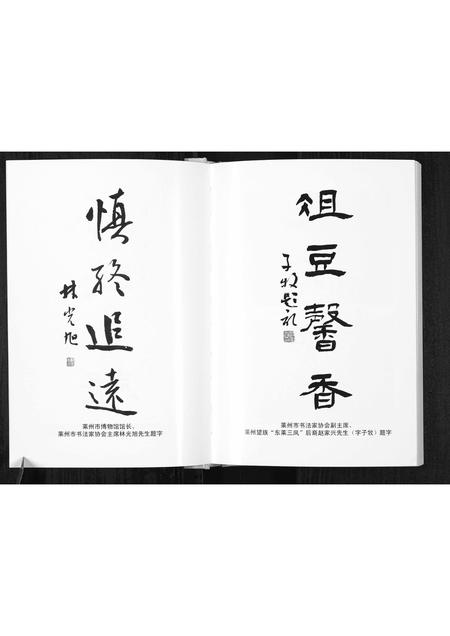 慎终追远
林光旭
莱州市博物馆馆长、
莱州市书法家协会主席林光旭先生题字
俎豆馨香
子牧题礼
莱州市书法家协会副主席、
莱州望族“东莱三凤”后裔赵家兴先生（字子牧）题字